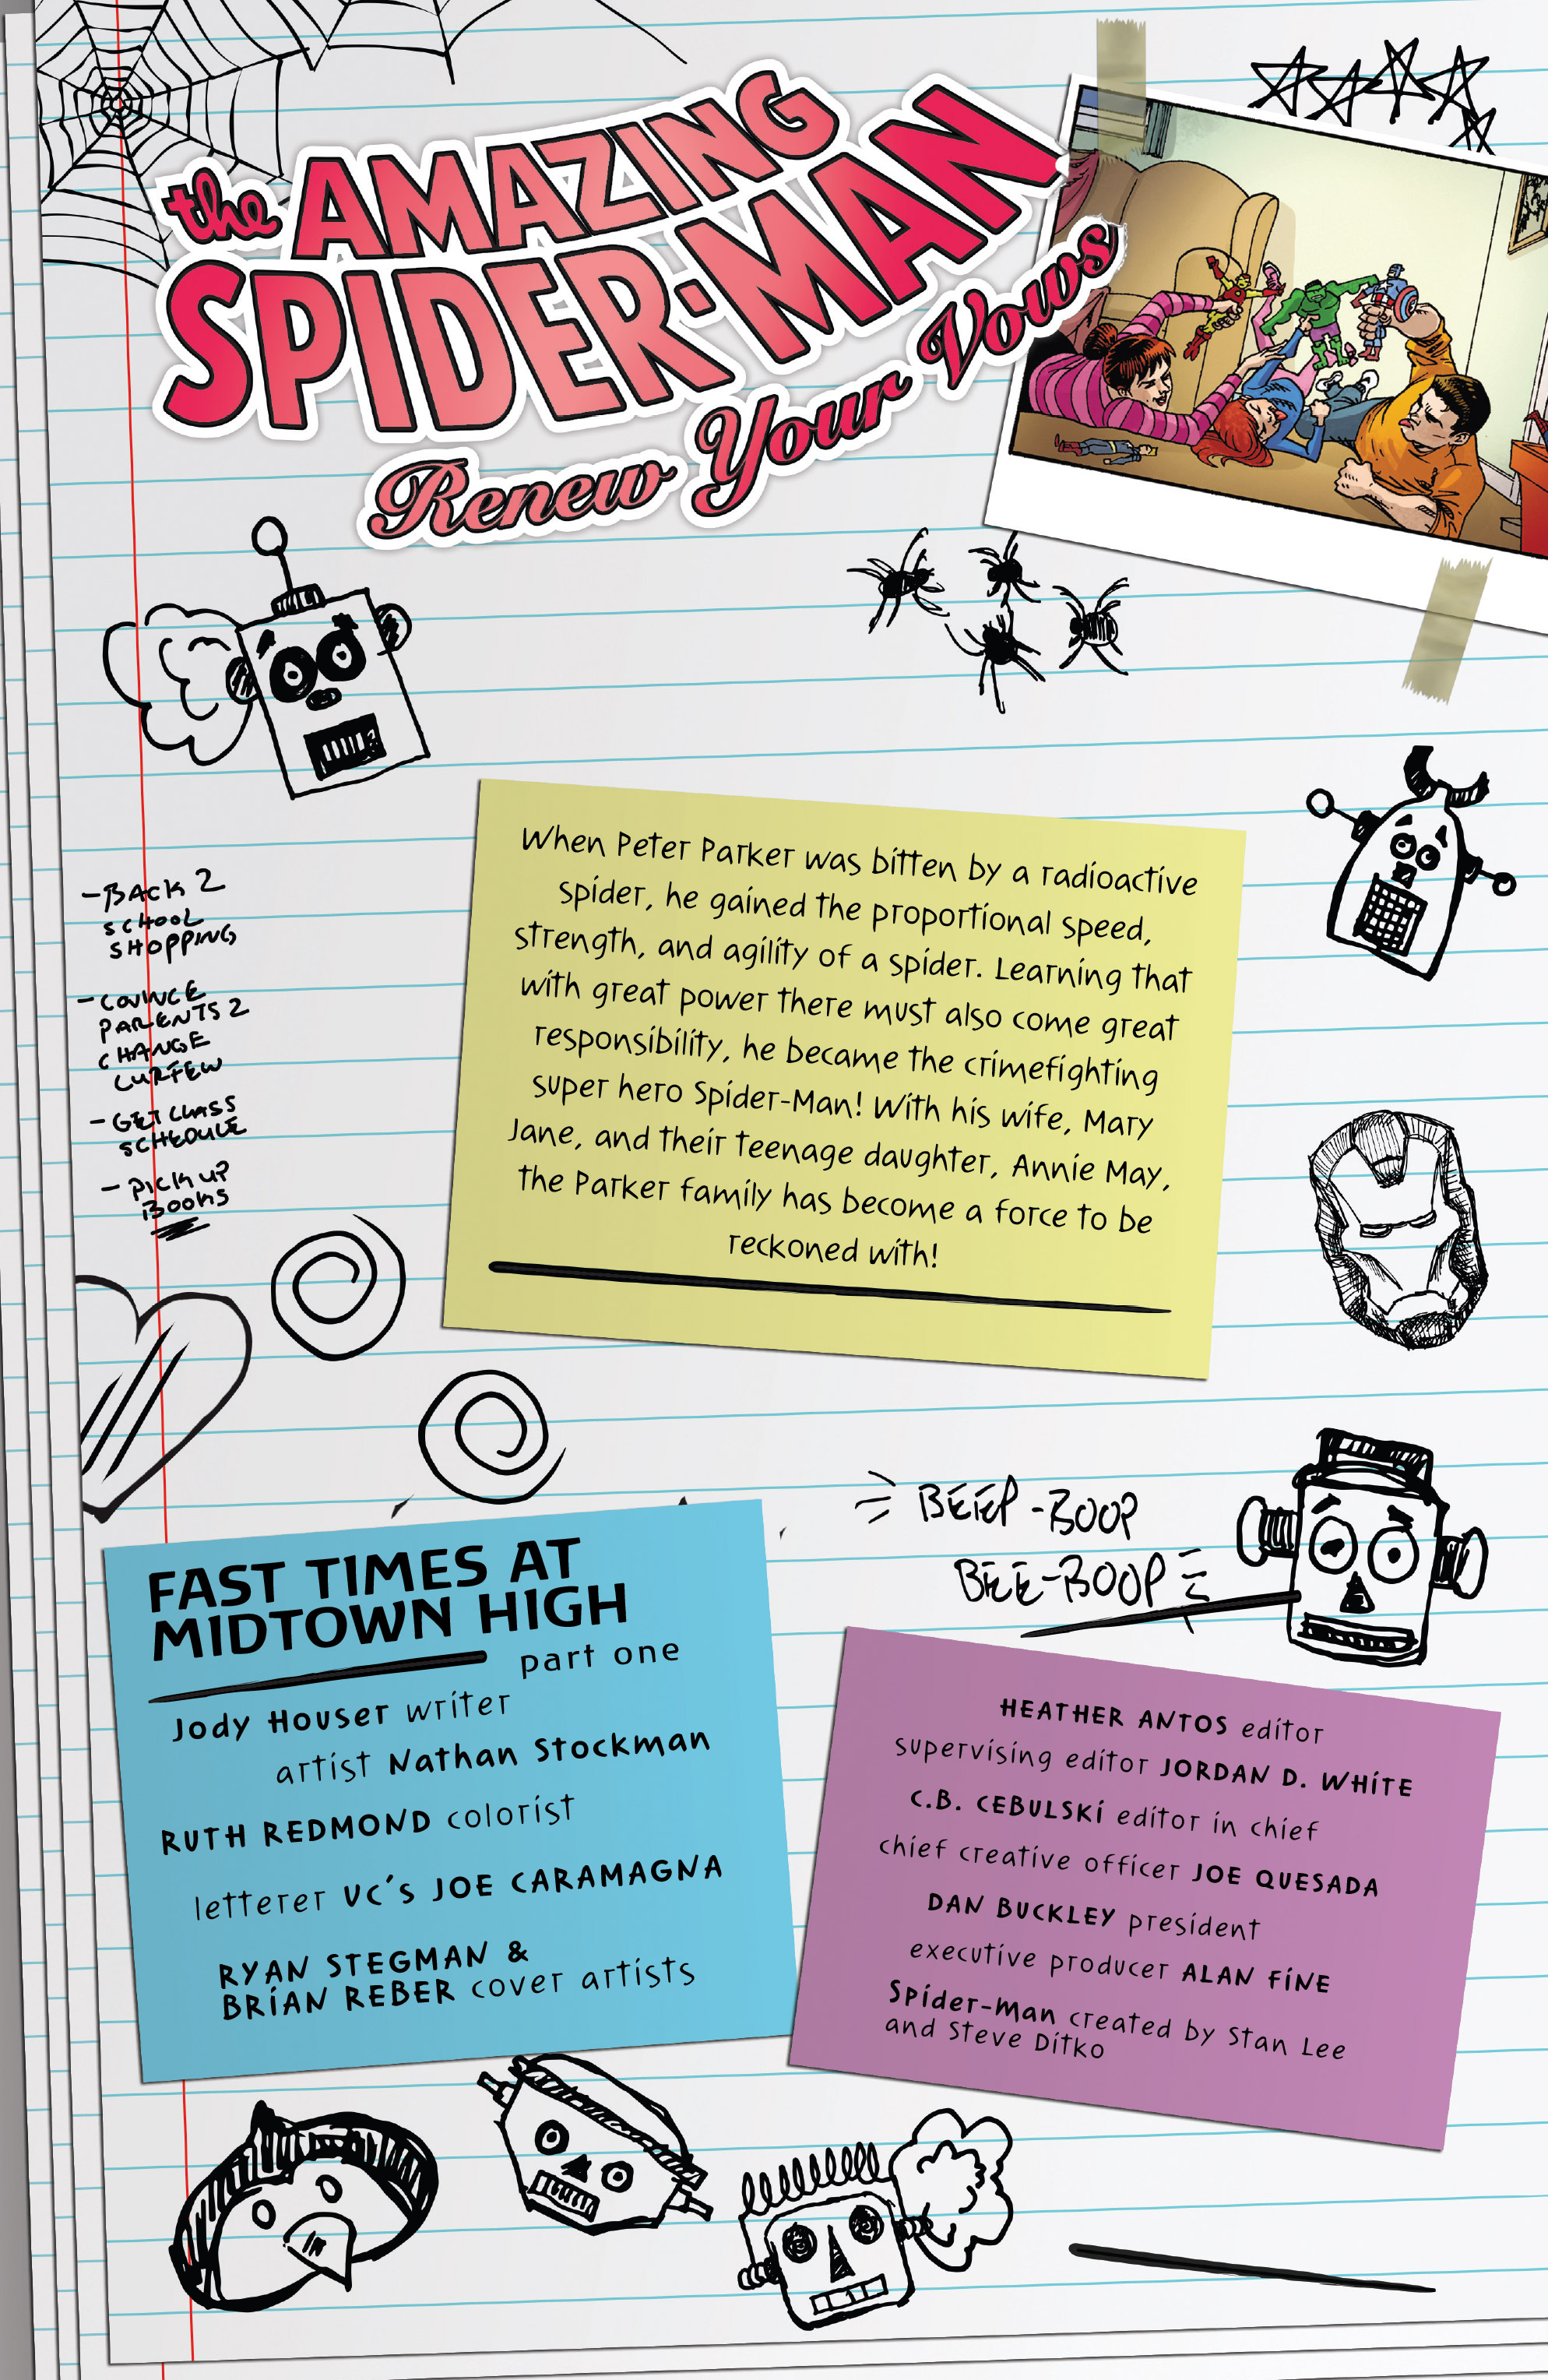 the AMAZING
SPIDER-MAN
Renew Your Vows
When Peter Parker was bitten by a radioactive
spider, he gained the proportional speed,
strength, and agility of a spider. Learning that
with great power there must also come great
responsibility, he became the crimefighting
super hero Spider-Man! With his wife, Mary
Jane, and their teenage daughter, Annie May,
the Parker family has become a force to be
reckoned with!
-BACK 2
SCHOOL
SHOPPING
-COVINCE
PARENTS 2
CHANGE
CURFEW
-GET CLASS
SCHEDULE
-PICK UP
BOOKS
BEEP-BOOP
BEE-BOOP
FAST TIMES AT
MIDTOWN HIGH
part one
Jody Houser writer
artist Nathan Stockman
RUTH REDMOND colorist
letterer VC's JOE CARAMAGNA
RYAN STEGMAN &
BRIAN REBER cover artists
HEATHER ANTOS editor
supervising editor JORDAN D. WHITE
C.B. CEBULSKI editor in chief
chief creative officer JOE QUESADA
DAN BUCKLEY president
executive producer ALAN FINE
Spider-Man created by Stan Lee
and Steve Ditko